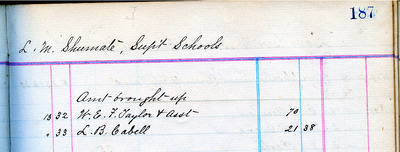 187
L. M. Shumate, Supt Schools
Amt brought up
13 32 W. E. F. Taylor & Asst 70
" 33 L. B. Cabell 21 38